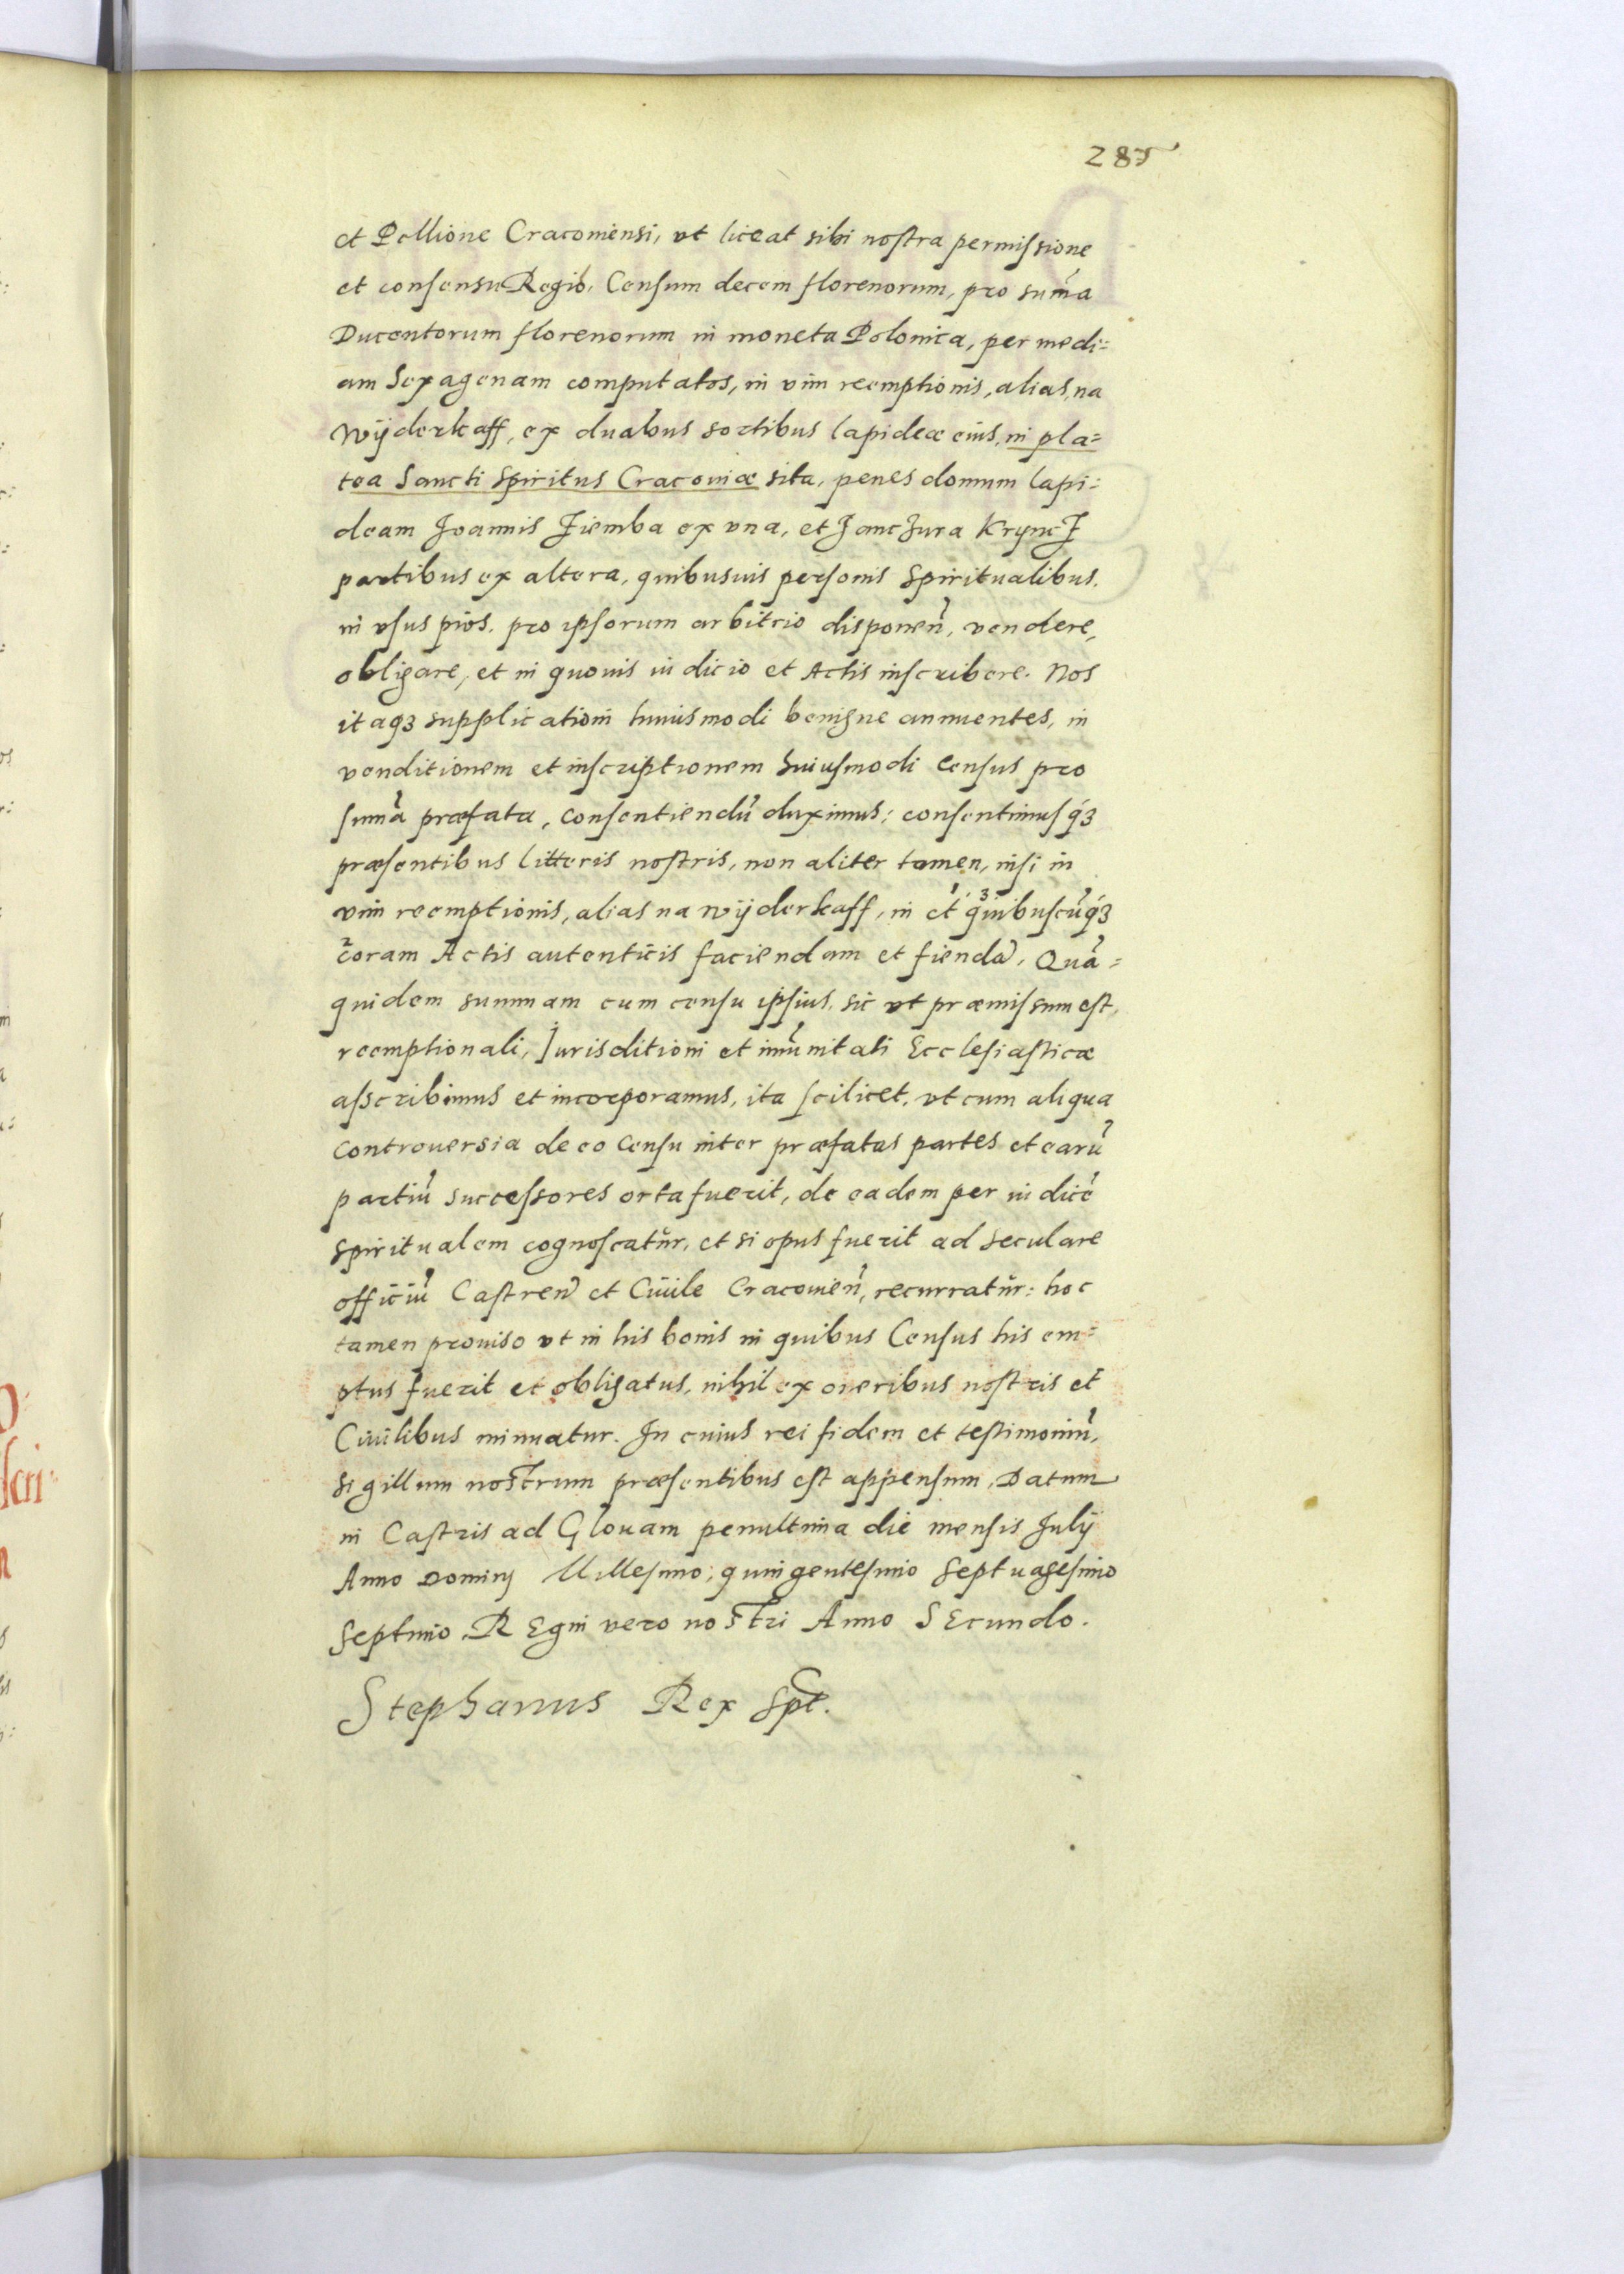 285
et Pellione Cracouiensi, vt liceat sibi nostra permissione
et consensu Regio, Censum decem florenorum, pro sum̃a
Ducentorum florenorum in moneta Polonica, per medi=
am Sexagenam computatos, in vim reemptionis, alias, na
Wÿderkaff, ex duabus sortibus lapideæ eius, in pla=
tea Sancti Spiritus Cracouiæ sita, penes domum lapi=
deam Joannis Ziemba ex vna, et
partibus ex altera, quibusuis personis Spiritualibus,
in vsus pios, pro ipsorum arbitrio disponeñ, vendere,
obligare, et in quouis iudicio et Actis inscribere. Nos
itaqꝫ supplicationi huiusmodi benigne annuentes, in
venditionem et inscriptionem huiusmodi Census pro
sum̃a præfata, consentiendũ duximus; consentimusqꝫ
præsentibus litteris nostris, non aliter tamen, nisi in
vim reemptionis, alias na wÿderkaff, in et quibuscũqꝫ
coram Actis autenticis faciendam et fiendã. Quã=
quidem summam cum censu ipsius, sic vt præmissum est,
reemptionali, Jurisditioni et imũnitati Ecclesiasticæ
asscribimus et incorporamus, ita scilicet, vt cum aliqua
controuersia de eo Censu inter præfatas partes et earũ
partiũ successores orta fuerit, de eadem per iudicẽ
Spiritualem cognoscatur, et si opus fuerit ad seculare
officiũ Castreñ et Ciuile Cracouieñ, recurratur: hoc
tamen prouiso vt in his bonis in quibus Census his em=
ptus fuerit et obligatus, nihil ex oneribus nostris et
Ciuilibus minuatur. In cuius rei fidem et testimoniũ,
Sigillum nostrum præsentibus est appensum. Datum
in Castris ad Glouam penultima die mensis Julÿ
Anno Dominj Millesimo, quingentesimo Septuagesimo
Septimo. REgni vero nostri Anno SEcundo.
Stephanus Rex Spt.